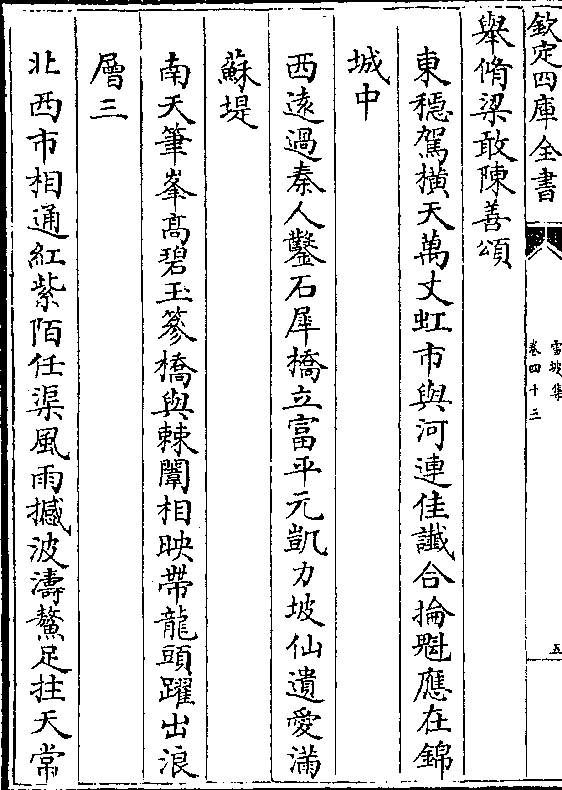 欽定四庫全書
雪坡集
卷四十三
五
舉脩梁敢陳善頌
東穩駕橫天萬丈虹市與河連佳讖合掄魁應在錦
城中
西遠過秦人鑿石犀橋立富平元凱力坡仙遺愛滿
蘇堤
南天筆峯高碧玉篸橋與棘闈相映帶龍頭躍出浪
層三
北西市相通紅紫陌任渠風雨撼波濤鰲足拄天常